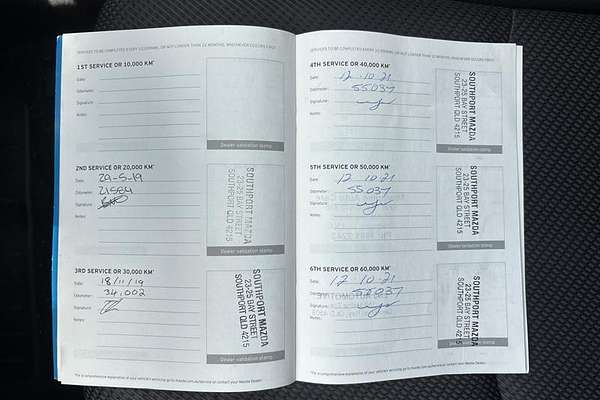 SERVICES TO BE COMPLETED EVERY 10,000KM, OR NOT LONGER THAN 12 MONTHS, WHICHEVER OCCURS FIRST
1ST SERVICE OR 10,000 KM*
Date:
Odometer:
Signature:
Notes:
Dealer validation stamp
2ND SERVICE OR 20,000 KM*
Date: 29-5-19
Odometer: 21584
Signature:
Notes:
SOUTHPORT MAZDA
23-25 BAY STREET
SOUTHPORT QLD 4215
Dealer validation stamp
3RD SERVICE OR 30,000 KM*
Date: 18/11/19
Odometer: 34,002
Signature:
Notes:
SOUTHPORT MAZDA
23-25 BAY STREET
SOUTHPORT QLD 4215
Dealer validation stamp
SERVICES TO BE COMPLETED EVERY 10,000KM, OR NOT LONGER THAN 12 MONTHS, WHICHEVER OCCURS FIRST
4TH SERVICE OR 40,000 KM*
Date: 12-10-21
Odometer: 55037
Signature:
Notes:
SOUTHPORT MAZDA
23-25 BAY STREET
SOUTHPORT QLD 4215
Dealer validation stamp
5TH SERVICE OR 50,000 KM*
Date: 12-10-21
Odometer: 55037
Signature:
Notes:
SOUTHPORT MAZDA
23-25 BAY STREET
SOUTHPORT QLD 4215
Dealer validation stamp
6TH SERVICE OR 60,000 KM*
Date: 12 10-21
Odometer:
Signature:
Notes:
SOUTHPORT MAZDA
23-25 BAY STREET
SOUTHPORT QLD 4215
Dealer validation stamp